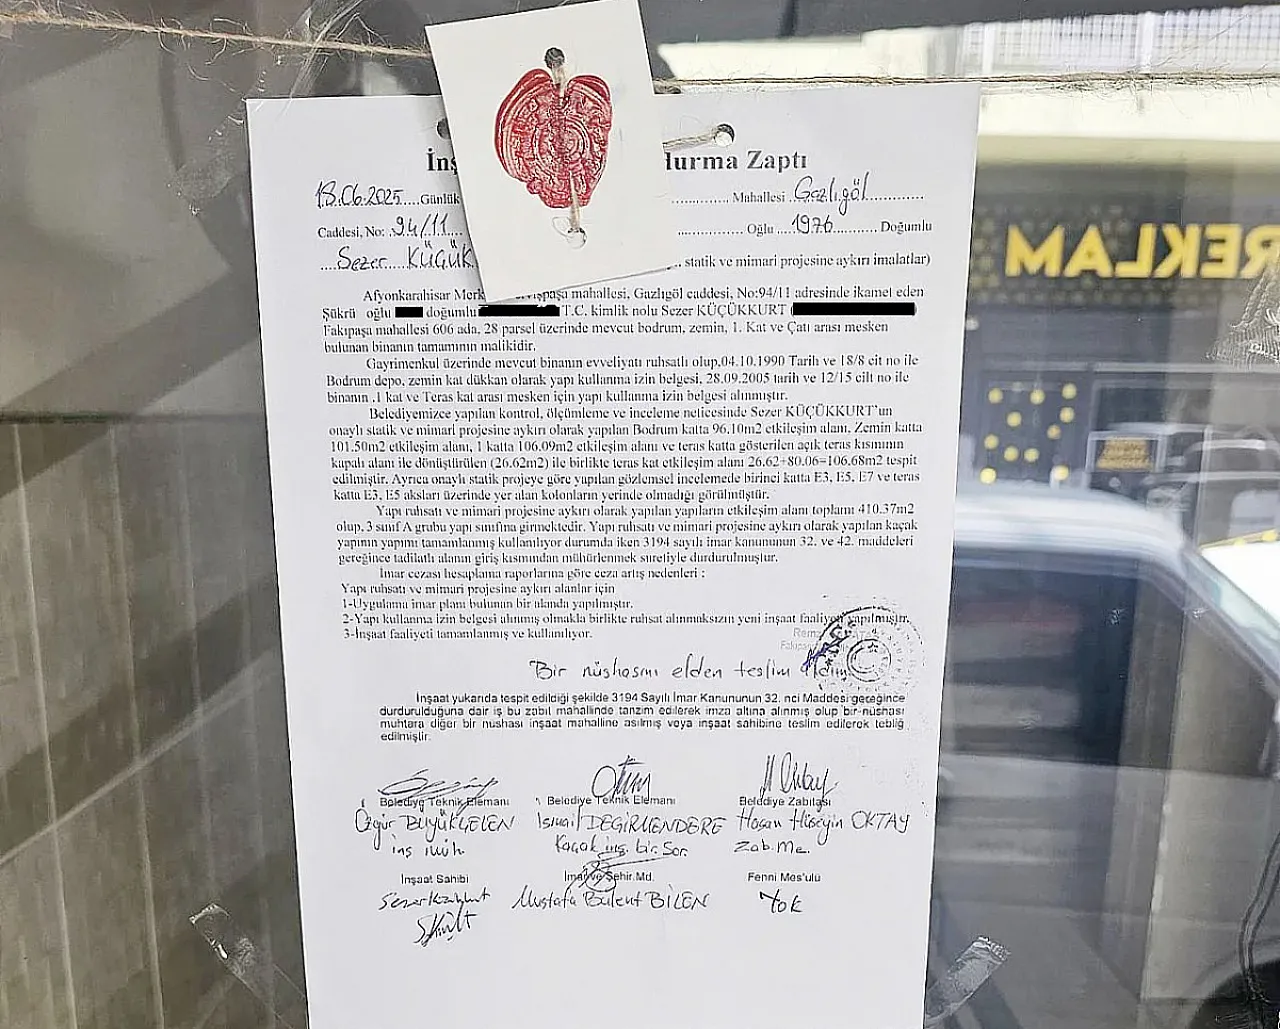 İnş durma Zaptı
18.06.2025 Günlük Mahallesi Gazlıgöl
Caddesi, No: 94/11 Oğlu 1976 Doğumlu
Sezer KÜÇÜK statik ve mimari projesine aykırı imalatlar)
Afyonkarahisar Merk mahallesi, Gazlıgöl caddesi, No:94/11 adresinde ikamet eden
Şükrü oğlu doğumlu T.C. kimlik nolu Sezer KÜÇÜKKURT (
Fakıpaşa mahallesi 606 ada, 28 parsel üzerinde mevcut bodrum, zemin, 1. Kat ve Çatı arası mesken
bulunan binanın tamamının malikidir.
Gayrimenkul üzerinde mevcut binanın evveliyatı ruhsatlı olup,04.10.1990 Tarih ve 18/8 cit no ile
Bodrum depo, zemin kat dükkan olarak yapı kullanma izin belgesi, 28.09.2005 tarih ve 12/15 cilt no ile
binanın .1 kat ve Teras kat arası mesken için yapı kullanma izin belgesi alınmıştır.
Belediyemizce yapılan kontrol, ölçümleme ve inceleme neticesinde Sezer KÜÇÜKKURT'un
onaylı statik ve mimari projesine aykırı olarak yapılan Bodrum katta 96.10m2 etkileşim alanı, Zemin katta
101.50m2 etkileşim alanı, 1 katta 106.09m2 etkileşim alanı ve teras katta gösterilen açık teras kısmının
kapalı alanı ile dönüştürülen (26.62m2) ile birlikte teras kat etkileşim alanı 26.62+80.06=106.68m2 tespit
edilmiştir. Ayrıca onaylı statik projeye göre yapılan gözlemsel incelemede birinci katta E3, E5, E7 ve teras
katta E3, E5 aksları üzerinde yer alan kolonların yerinde olmadığı görülmüştür.
Yapı ruhsatı ve mimari projesine aykırı olarak yapılan yapıların etkileşim alanı toplamı 410.37m2
olup, 3 sınıf A grubu yapı sınıfına girmektedir. Yapı ruhsatı ve mimari projesine aykırı olarak yapılan kaçak
yapının yapımı tamamlanmış kullanılıyor durumda iken 3194 sayılı imar kanununun 32. ve 42. maddeleri
gereğince tadilatlı alanın giriş kısmından mühürlenmek suretiyle durdurulmuştur.
İmar cezası hesaplama raporlarına göre ceza artış nedenleri :
Yapı ruhsatı ve mimari projesine aykırı alanlar için
1-Uygulama imar planı bulunan bir alanda yapılmıştır.
2-Yapı kullanma izin belgesi alınmış olmakla birlikte ruhsat alınmaksızın yeni inşaat faaliyeti yapılmıştır.
3-İnşaat faaliyeti tamamlanmış ve kullanılıyor.
Bir nüshasını elden teslim aldım
İnşaat yukarıda tespit edildiği şekilde 3194 Sayılı İmar Kanununun 32. nci Maddesi gereğince
durdurulduğuna dair iş bu zabıt mahallinde tanzim edilerek imza altına alınmış olup bir-nüshası
muhtara diğer bir nüshası inşaat mahalline asılmış veya inşaat sahibine teslim edilerek tebliğ
edilmiştir.
Belediye Teknik Elemanı Belediye Teknik Elemanı Belediye Zabıtası
Özgür BÜYÜKGELEN İsmail DEĞİRMENDERE Hasan Hüseyin OKTAY
inş müh. Kaçak inş. bir. Sor. Zab. Me.
İnşaat Sahibi İmar ve Şehir.Md. Fenni Mes'ulü
Sezer Küçükkurt Mustafa Bülent BİLEN Yok
REKLAM